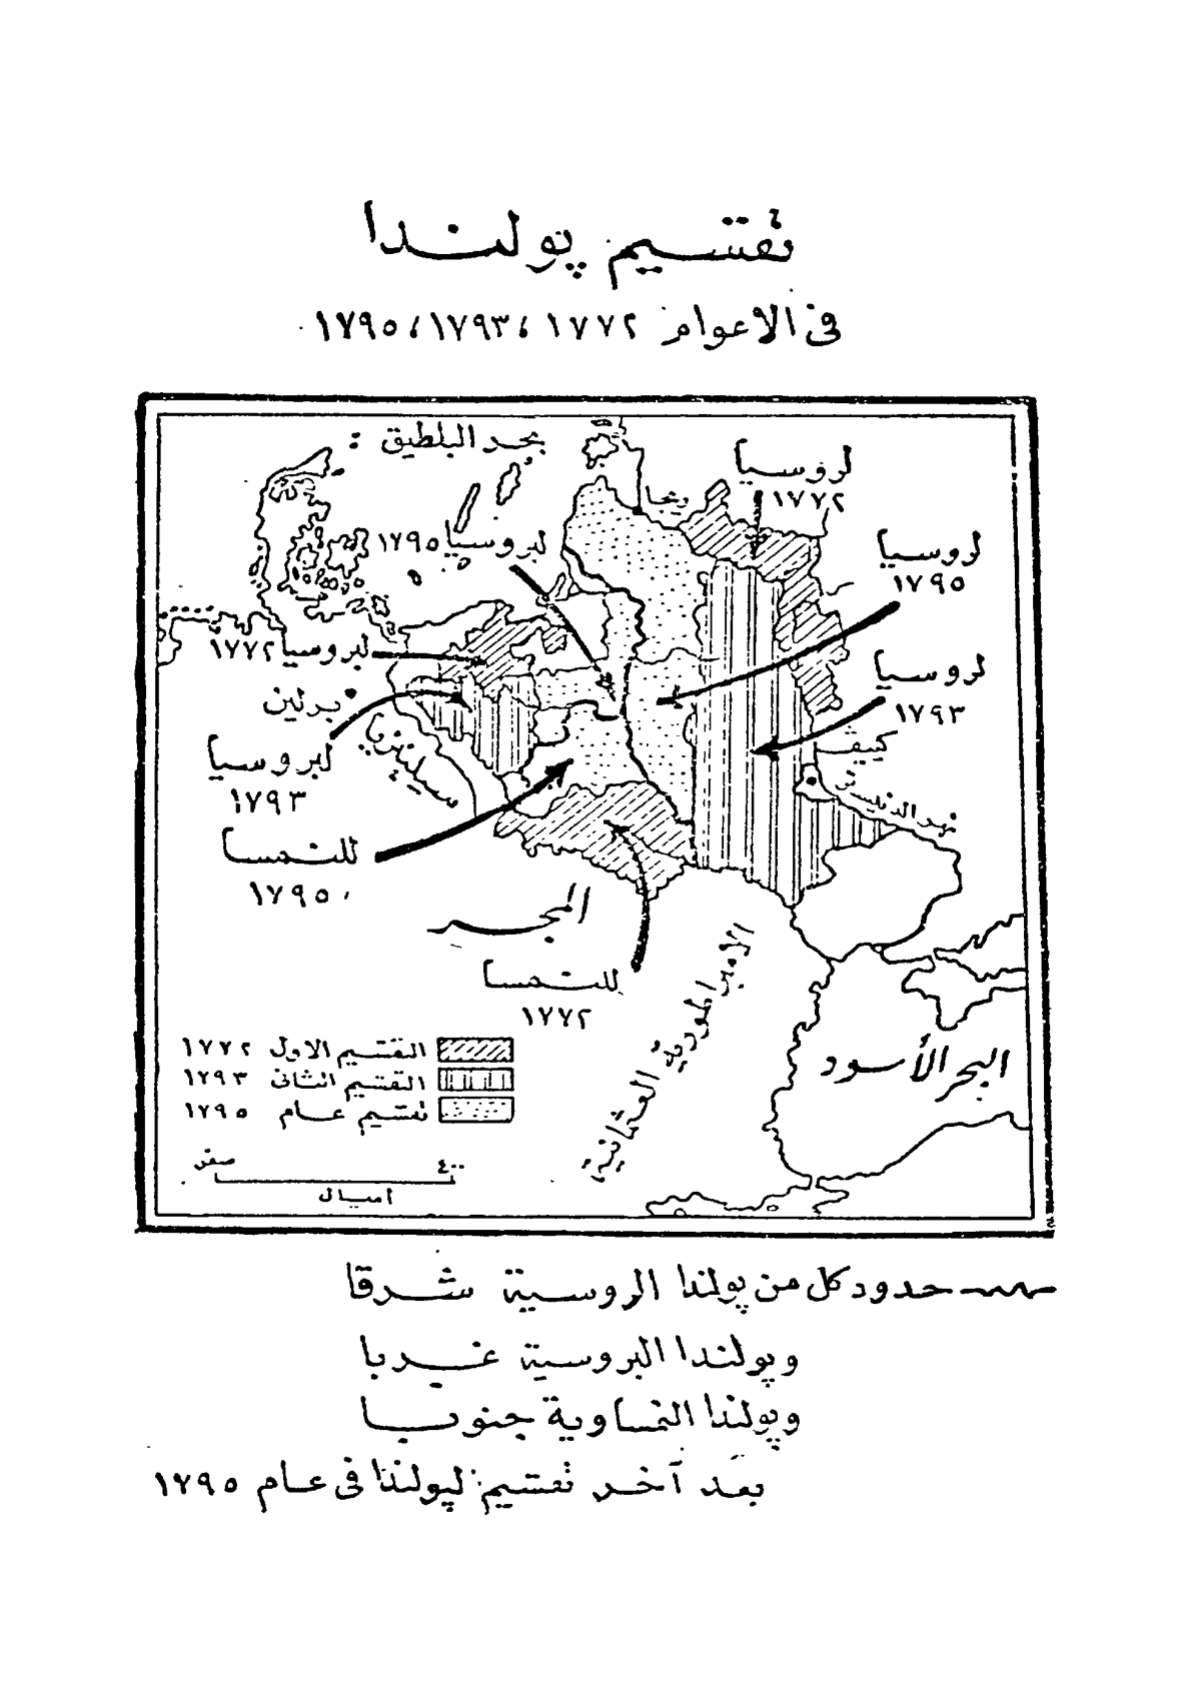 تقسيم پولندا
فى الاعوام ١٧٧٢، ١٧٩٣، ١٧٩٥
بحر البلطيق :
لروسيا
١٧٧٢
ريجا
لبروسيا ١٧٩٥
لروسيا
١٧٩٥
لبروسيا ١٧٧٢
لروسيا
١٧٩٣
برلين
كييف
سيليزيا
لبروسيا
١٧٩٣
نهر الدنيستر
للنمسا
١٧٩٥
المجر
للنمسا
١٧٧٢
الأمبراطورية العثمانية
البحر الأسود
التقسيم الاول ١٧٧٢
التقسيم الثانى ١٧٩٣
تقسيم عام ١٧٩٥
صفر ٤٠٠
اميال
حدود كل من پولندا الروسية شرقا
وپولندا البروسية غربا
وپولندا النمساوية جنوبا
بعد آخر تقسيم لپولندا فى عام ١٧٩٥